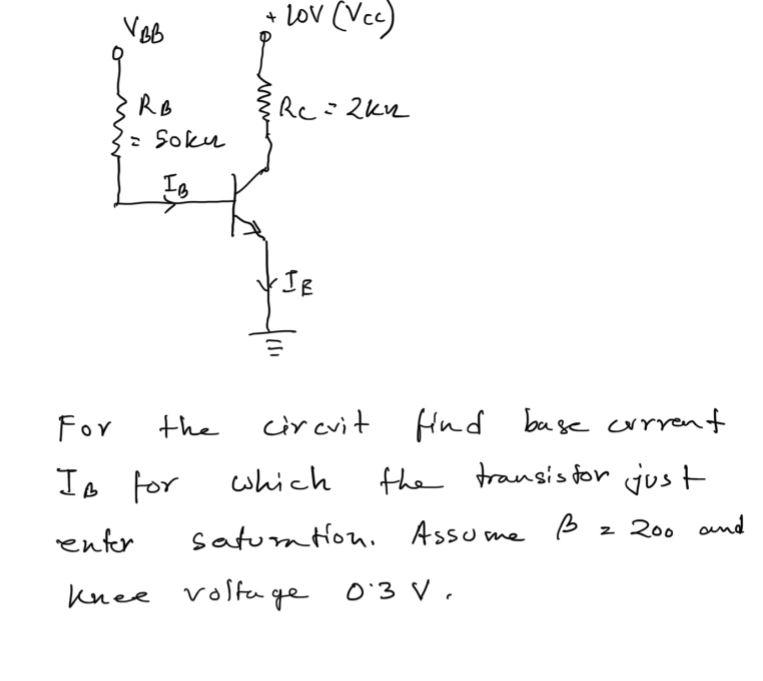 VBB
+ 10V (Vcc)
RB
= 50kΩ
RC = 2kΩ
IB
IE
For the circuit find base current
IB for which the transistor just
enter saturation. Assume β = 200 and
knee voltage 0.3 V.